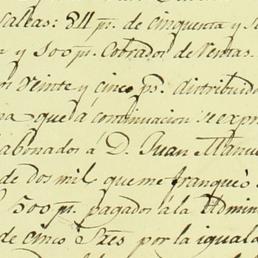 saltas: 84 ps. de cinquenta y s
a y 500 ps. Cobrados de rentas.
os veinte y cinco ps. distribuido
na que á continuacion se expr
abonados á D. Juan Manu
de dos mil que me franqueó
500 ps. pagados á la Admin
de cinco Tres por la iguala